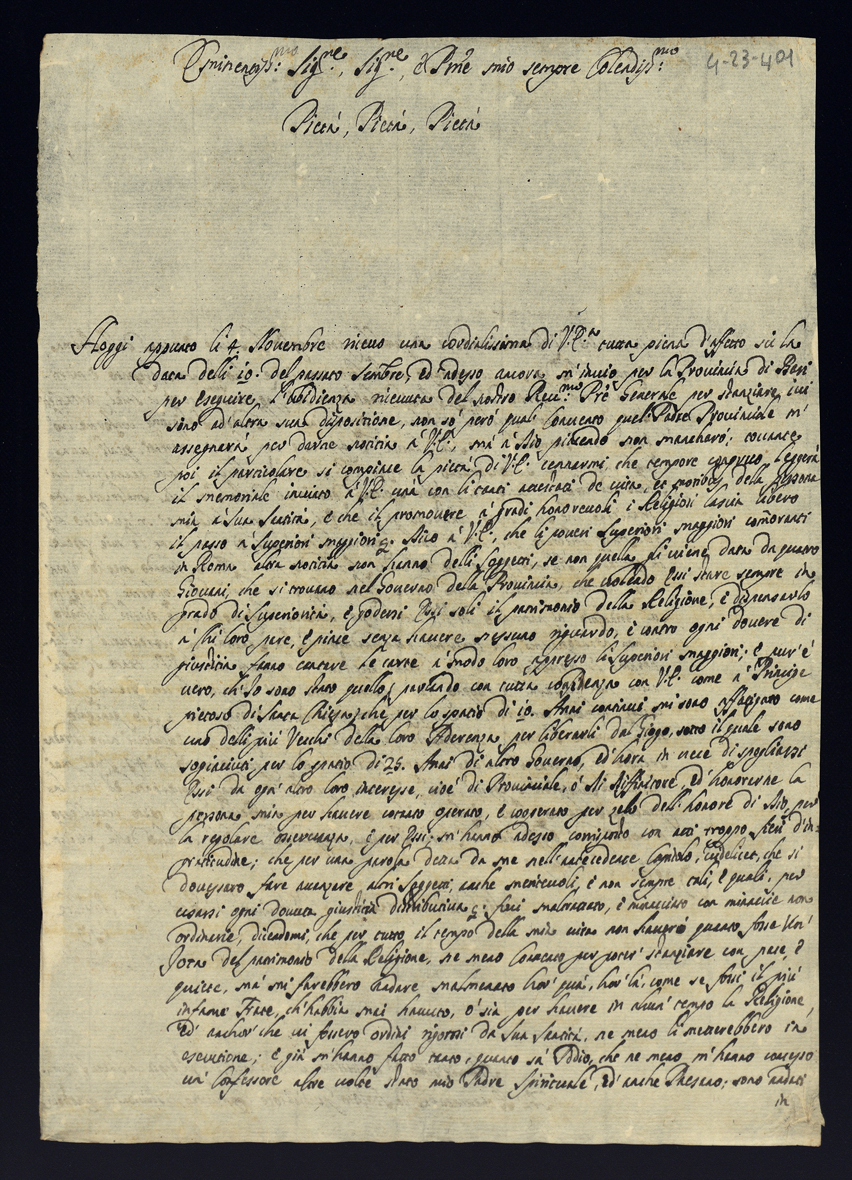 Eminentiss:mo Sig.re, Sig.re, è Prñe mio sempre Colendiss:mo
4-23-401
Pietà, Pietà, Pietà
Hoggi appunto li 4. Novembre ricevo una cordialissima di V.E.za tutta piena d'affetto sù la
data delli 10. del passato 7embre, ed' adesso ancora m'invio per la Provincia di Bari
per eseguire l'ubbidienza ricevuta del nostro Reve:mo Prê Generale per stanziare ivi
sino ad' altra sua disposizione, non sò però quali Convento quel Padre Provinciale m'
assegnarà per darne notitia à V.E., mà à Dio piacendo non mancherò; toccante
poi il particolare si compiace la pietà di V.E. cennarmi, che tempore congruo leggerà
il memoriale inviato à V.E. unà con li tanti attestati de vita, et moribus della Persona
mia à Sua Santità, è che il promovere à gradi honorevoli i Religiosi lascia libero
il passo à Superiori maggiori &. Dico à V.E., che li poveri Superiori maggiori comoranti
in Roma altra notitia non hanno delli soggetti, se non quella li viene data da quattro
Giovani, che si trovano nel Governo della Provincia, che volendo Essi stare sempre in
grado di Superiorità, è godersi Essi soli il patrimonio della Religione, è dispensarlo
à chi loro pare, è piace senza havere nessuno riguardo, è contro ogni dovere di
giustitia fanno cantare le carte à modo loro appresso li Superiori maggiori; è pur'è
vero, ch'Io sono stato quello, parlando con tutta confidenza con V.E. come à Principe
pietoso di Santa Chiesa, che per lo spatio di 10. Anni continui mi sono affatigato come
uno delli più Vecchi della loro Aderenza per liberarli dal Giogo, sotto il quale sono
soggiaciuti per lo spatio di 25. Anni di altro Governo, ed' hora in vece di spogliarsi
Essi da ogn'altro loro interesse, cioè di Provinciale, ò di Diffinitore, ed' honorarne la
persona mia per havere cotanto operato, è cooperato per zelo dell'honore di Dio, per
la regolare osservanza, è per Essi; m'hanno adesso corrisposto con atti troppo fieri d'in-
gratitudine; che per una parola detta da me nell'antecedente Capitolo, videlicet, che si
dovessero fare avanzare altri soggetti, anche meritevoli, è non sempre tali, è quali, per
usarsi ogni dovuta giustitia distributiva &: fui maltrattato, è minacciato con minaccie non
ordinarie, dicendomi, che per tutto il tempo della mia vita non haverò quanto fosse un'
Jota del patrimonio della Religione, ne meno Convento per poter' stanziare con pace, è
quiete, mà mi farebbero andare malmenato hor' quà, hor' là, come se fossi il più
infame Frate, ch'habbia mai havuto, ò sia per havere in alcun' tempo la Religione,
ed' anchor' che vi fossero ordini rigorosi da Sua Santità, ne meno li metterebbero in
esecutione; è già m'hanno fatto tanto, quanto sà Iddio, che ne meno m'hanno concesso
un' Confessore altre volte stato mio Padre Spirituale, ed' anche Paesano; sono andati
in